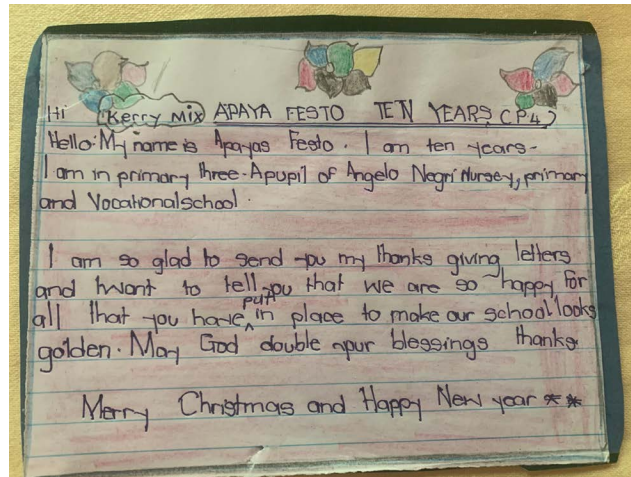 Hi Kerry Mix APAYA FESTO TEN YEARS (P4)
Hello: My name is Apayas Festo. I am ten years-
I am in primary three. Apupil of Angelo Negri Nursey, primary
and Vocational school.
I am so glad to send you my thanks giving letters
and I want to tell you that we are so happy for
all that you have putt in place to make our school looks
golden. May God double your blessings thanks
Merry Christmas and Happy New year **